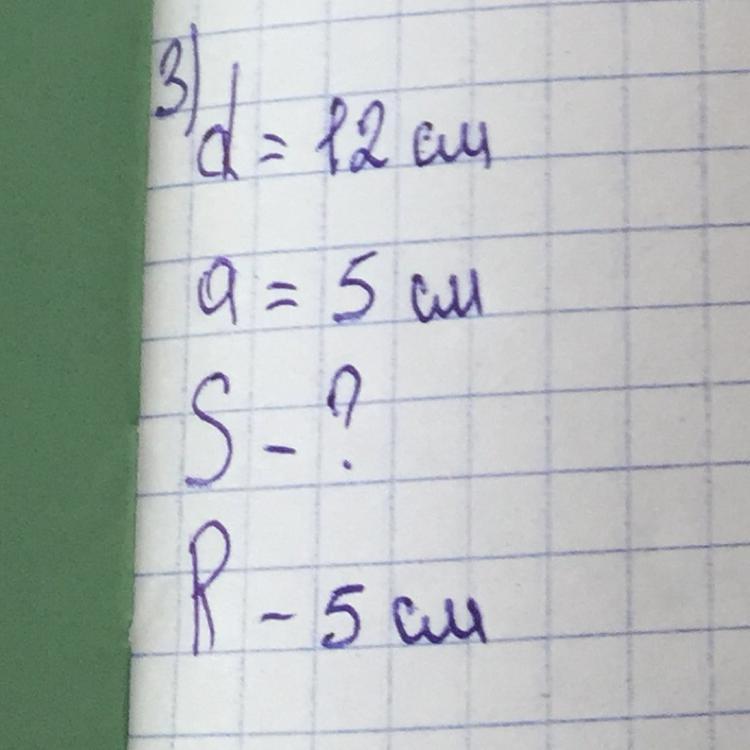 3) d = 12 см
a = 5 см
S - ?
P - 5 см